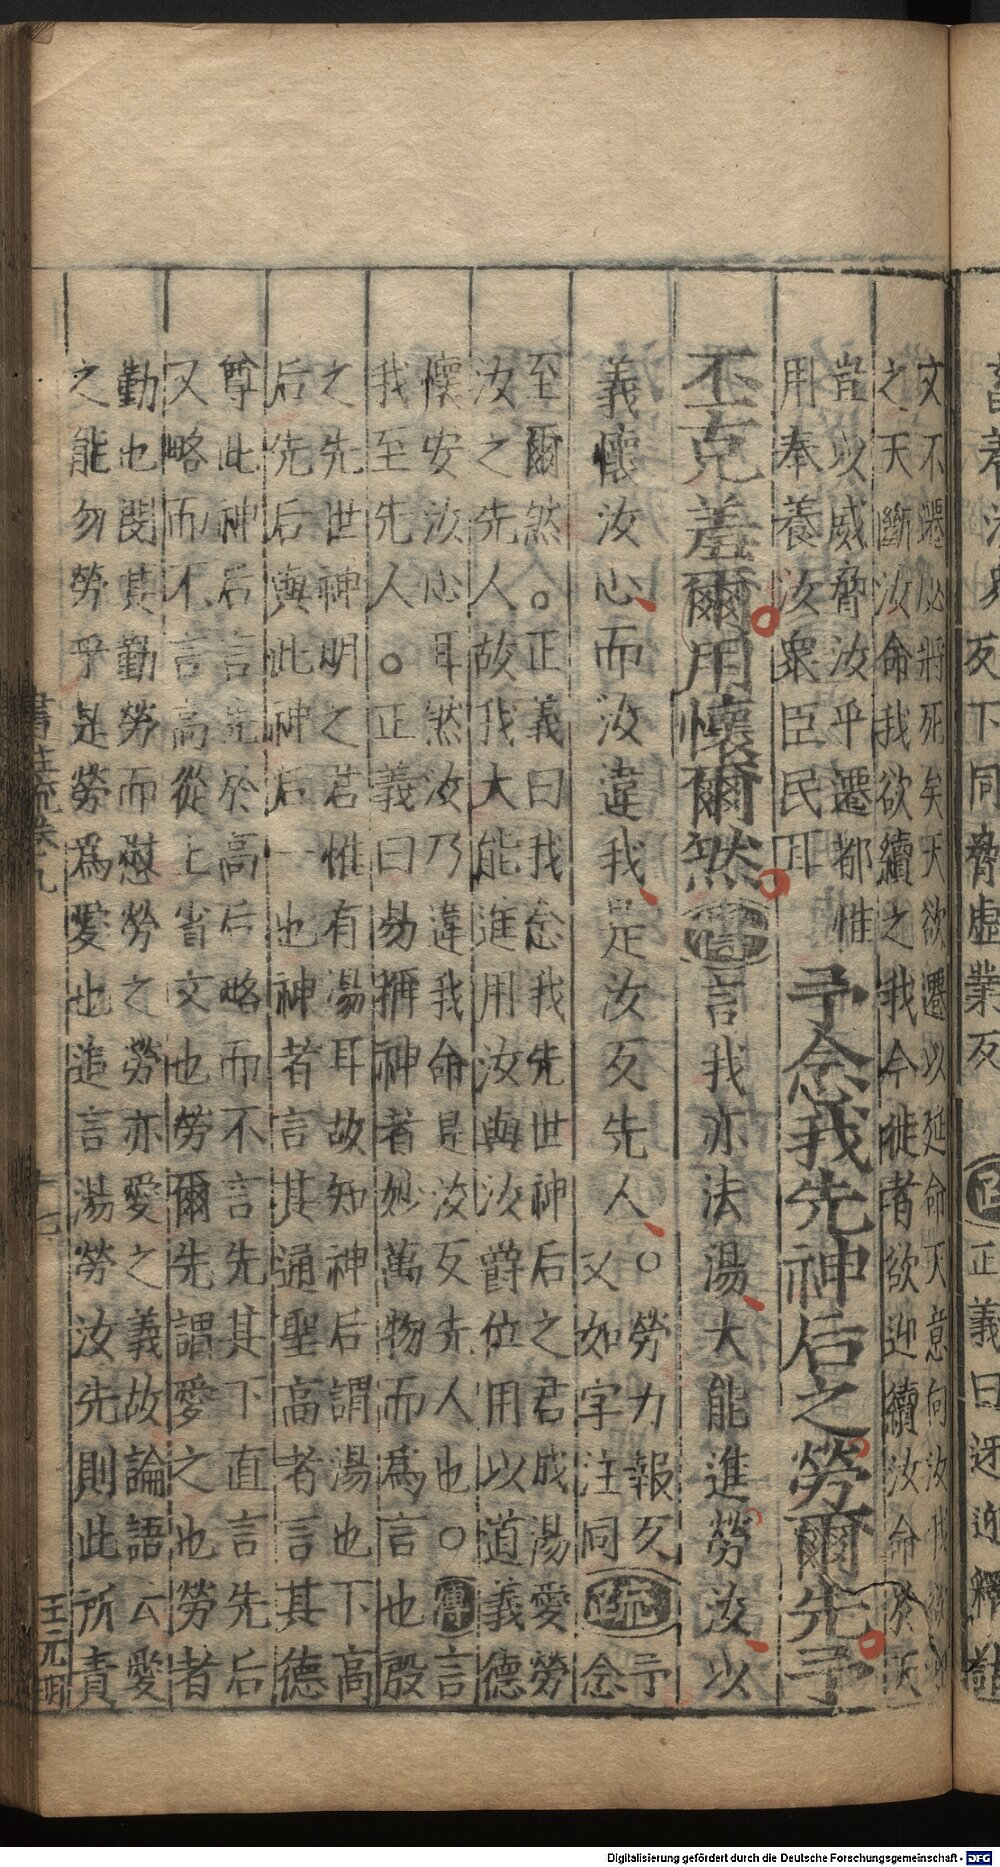 文不遷必將死矣天欲遷以延命天意向汝我欲
之天斷汝命我欲續之我今徙者欲迎續汝命於天
豈以威脅汝乎遷都惟
用奉養汝衆臣民耳
予念我先神后之勞爾先予
丕克羞爾用懷爾然傳言我亦法湯大能進勞汝以
義懷汝心而汝違我是汝反先人○勞力報反
又如字注同疏予念
至爾然○正義曰我念我先世神后之君成湯愛勞
汝之先人故我大能進用汝與汝爵位用以道義德
懷安汝心耳然汝乃違我命是汝反先人也○傳言
我至先人○正義曰易稱神者妙萬物而爲言也殷
之先世神明之君惟有湯耳故知神后謂湯也下高
后先后與此神后一也神者言其通聖高者言其德
尊此神后言先於高后略而不言先其下直言先后
又略而不言高從上省文也勞爾先謂愛之也勞者
勤也閔其勤勞而慰勞之勞亦愛之義故論語云愛
之能勿勞乎是勞爲愛也追言湯勞汝先則此所責
書注疏卷九
十七
王元明
死下同脅虛業反
正義曰迓迎釋詁
Digitalisierung gefördert durch die Deutsche Forschungsgemeinschaft - DFG